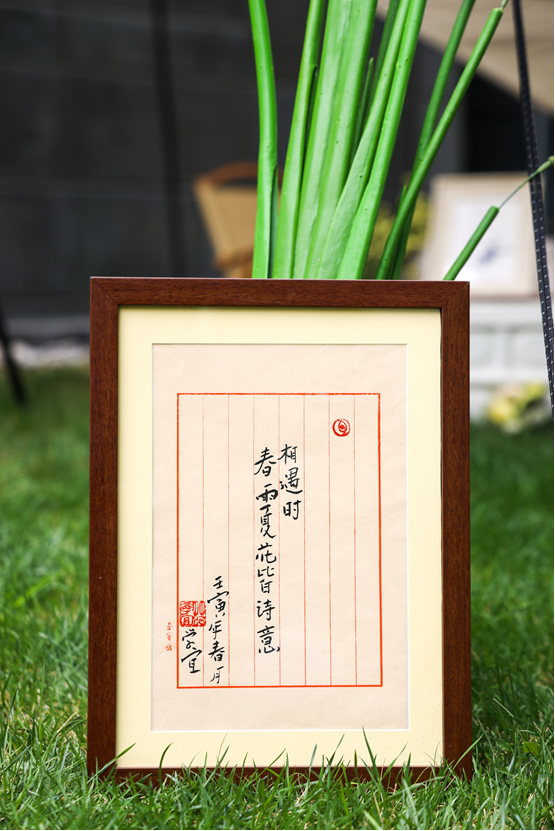 相遇时
春雨夏花皆诗意
壬寅年春月
学宜